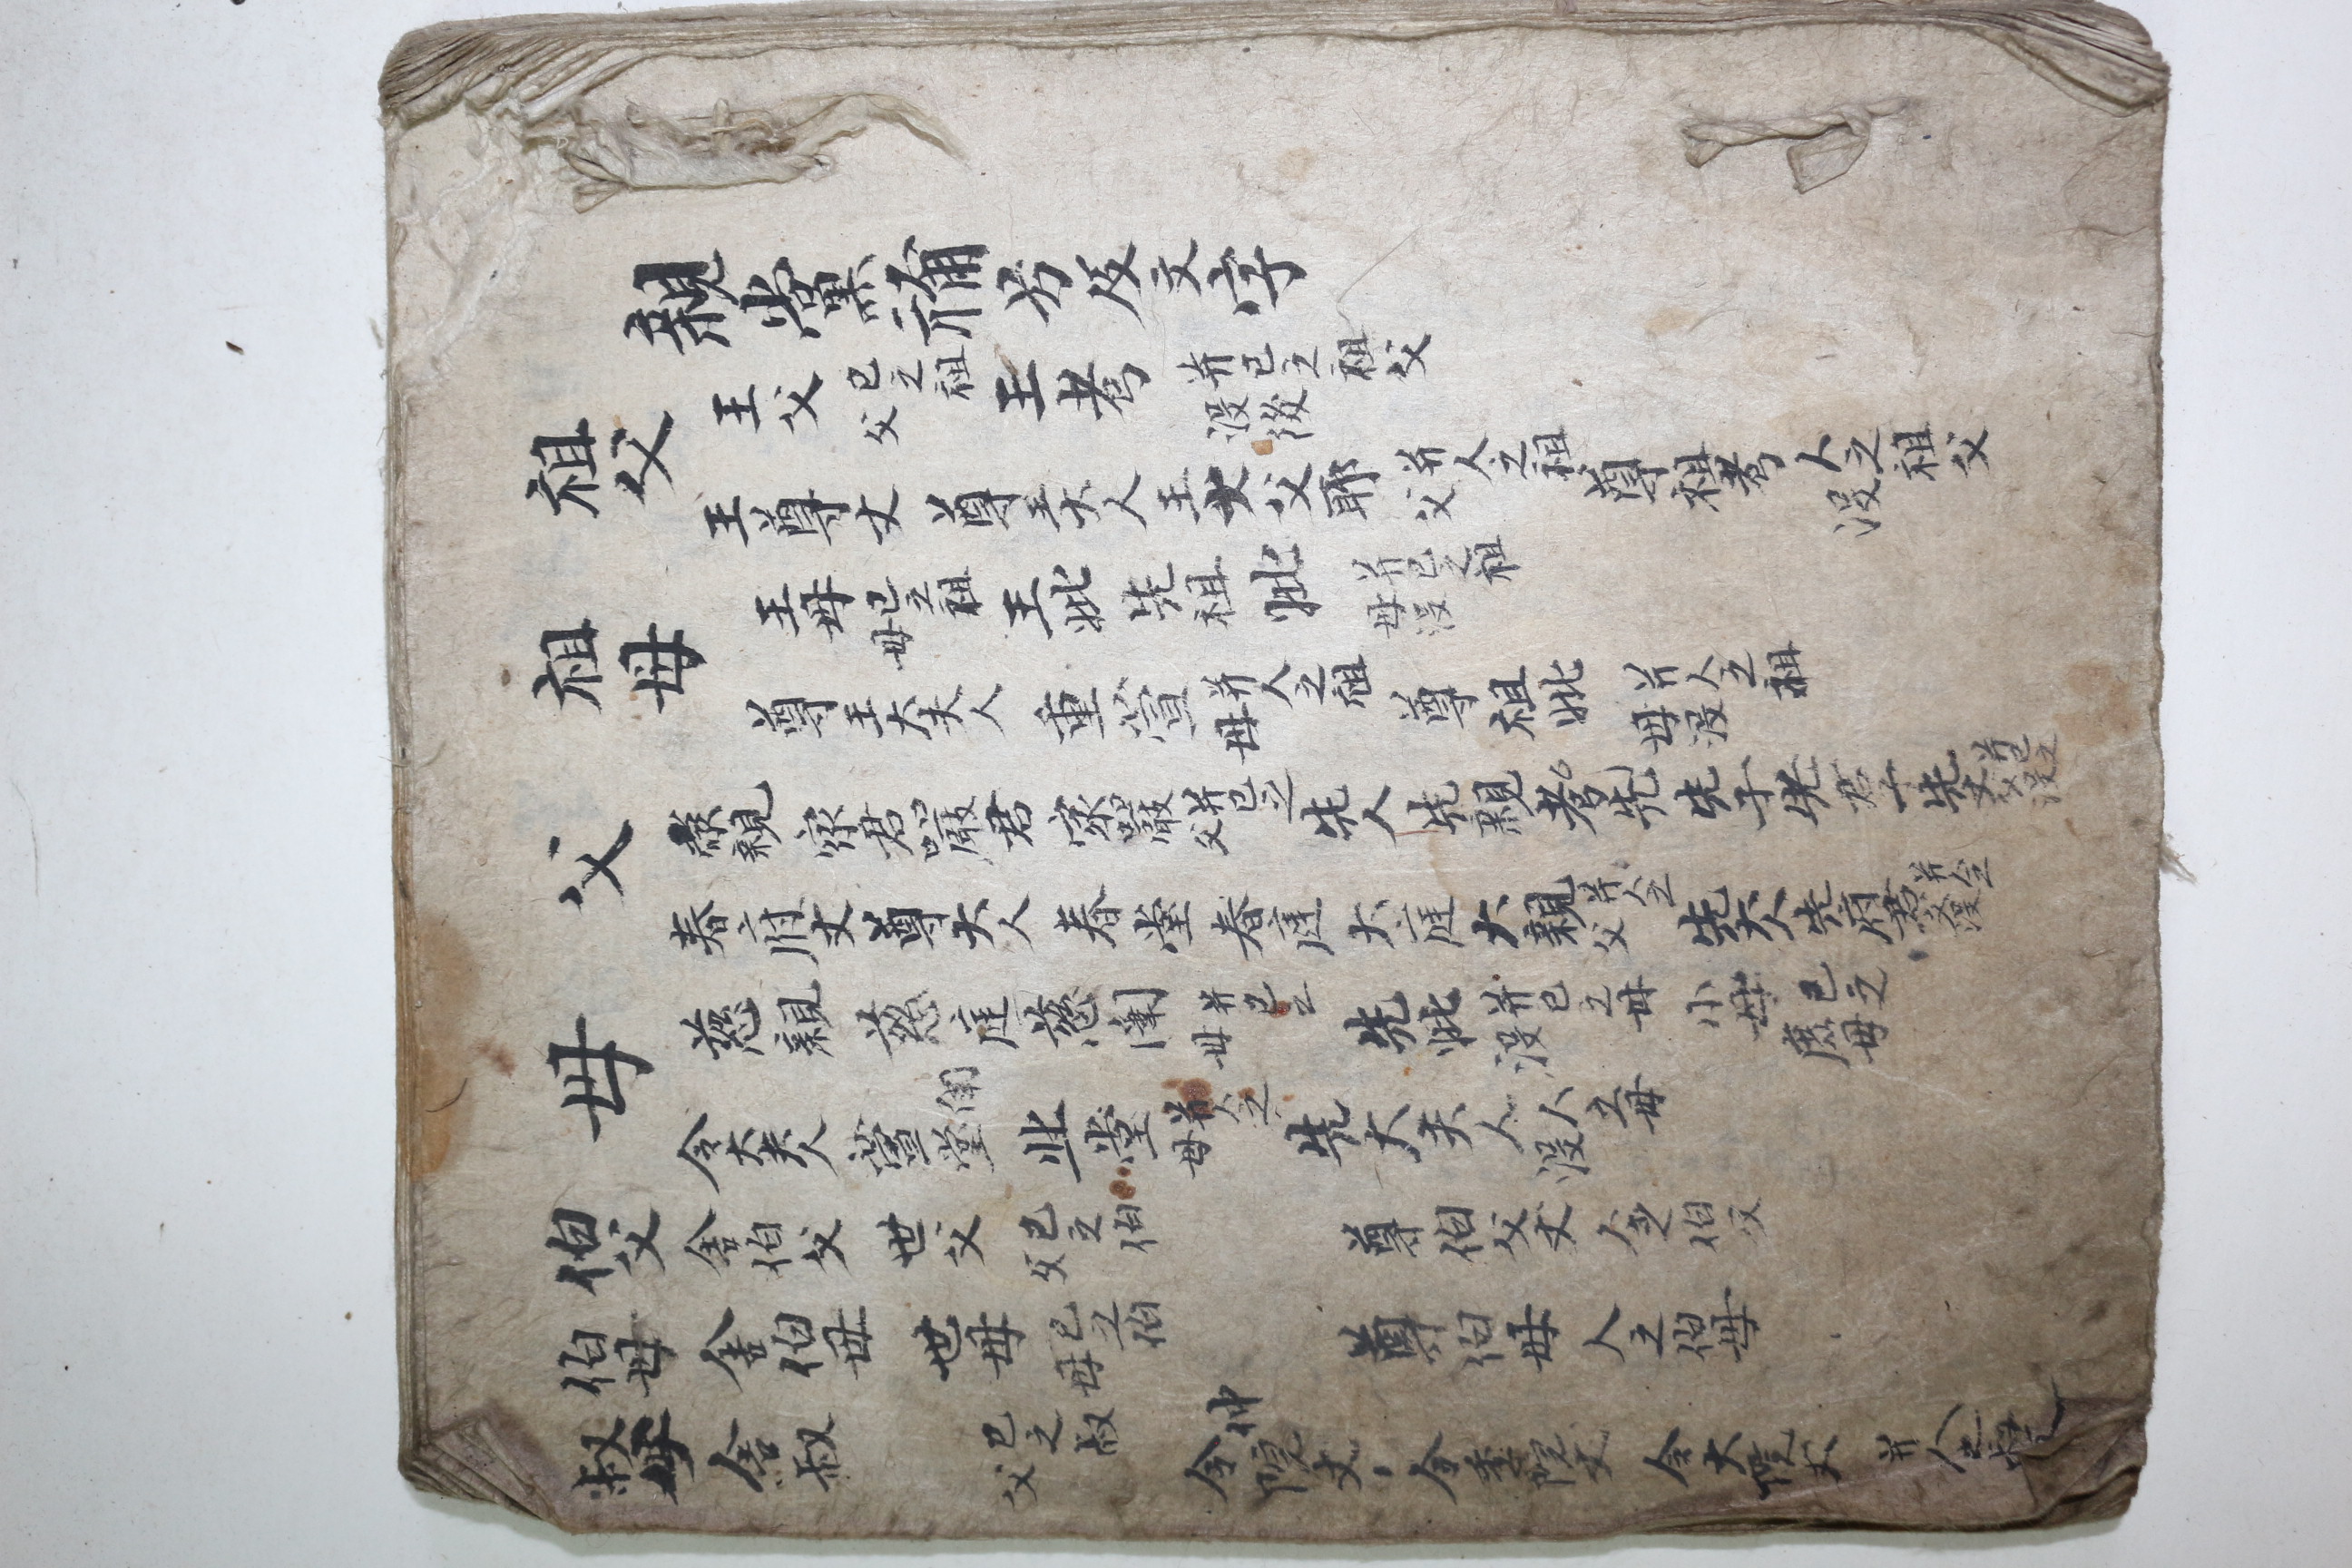 親黨稱号及文字
祖父 王父 己之祖父 王考 并己之祖父没後
王尊丈 尊王大人 王大父耶 并人之祖父 尊祖考 人之祖父没
祖母 王母 己之祖母 王妣 先祖妣 并己之祖母没
尊王大夫人 重萱 并人之祖母 尊祖妣 并人之祖母没
父 嚴親 家君 嚴君 家嚴 并己之父 先人 先親 考先 先子 先君子 先丈 并己之父没
春府丈 尊大人 春堂 春庭 大庭 大親 并人之父 先大人 先府君 并人之父没
母 慈親 慈庭 慈闈 并己之母 先妣 并己之母没 小母 己之庶母
令大夫人 萱堂 闈 北堂 并人之母 先大夫人 人之母没
伯父 舍伯父 世父 己之伯父 尊伯父丈 人之伯父
伯母 舍伯母 世母 己之伯母 尊伯母 人之伯母
叔母 舍叔 己之叔父 令仲院丈 令季院丈 令大院丈 并人之叔